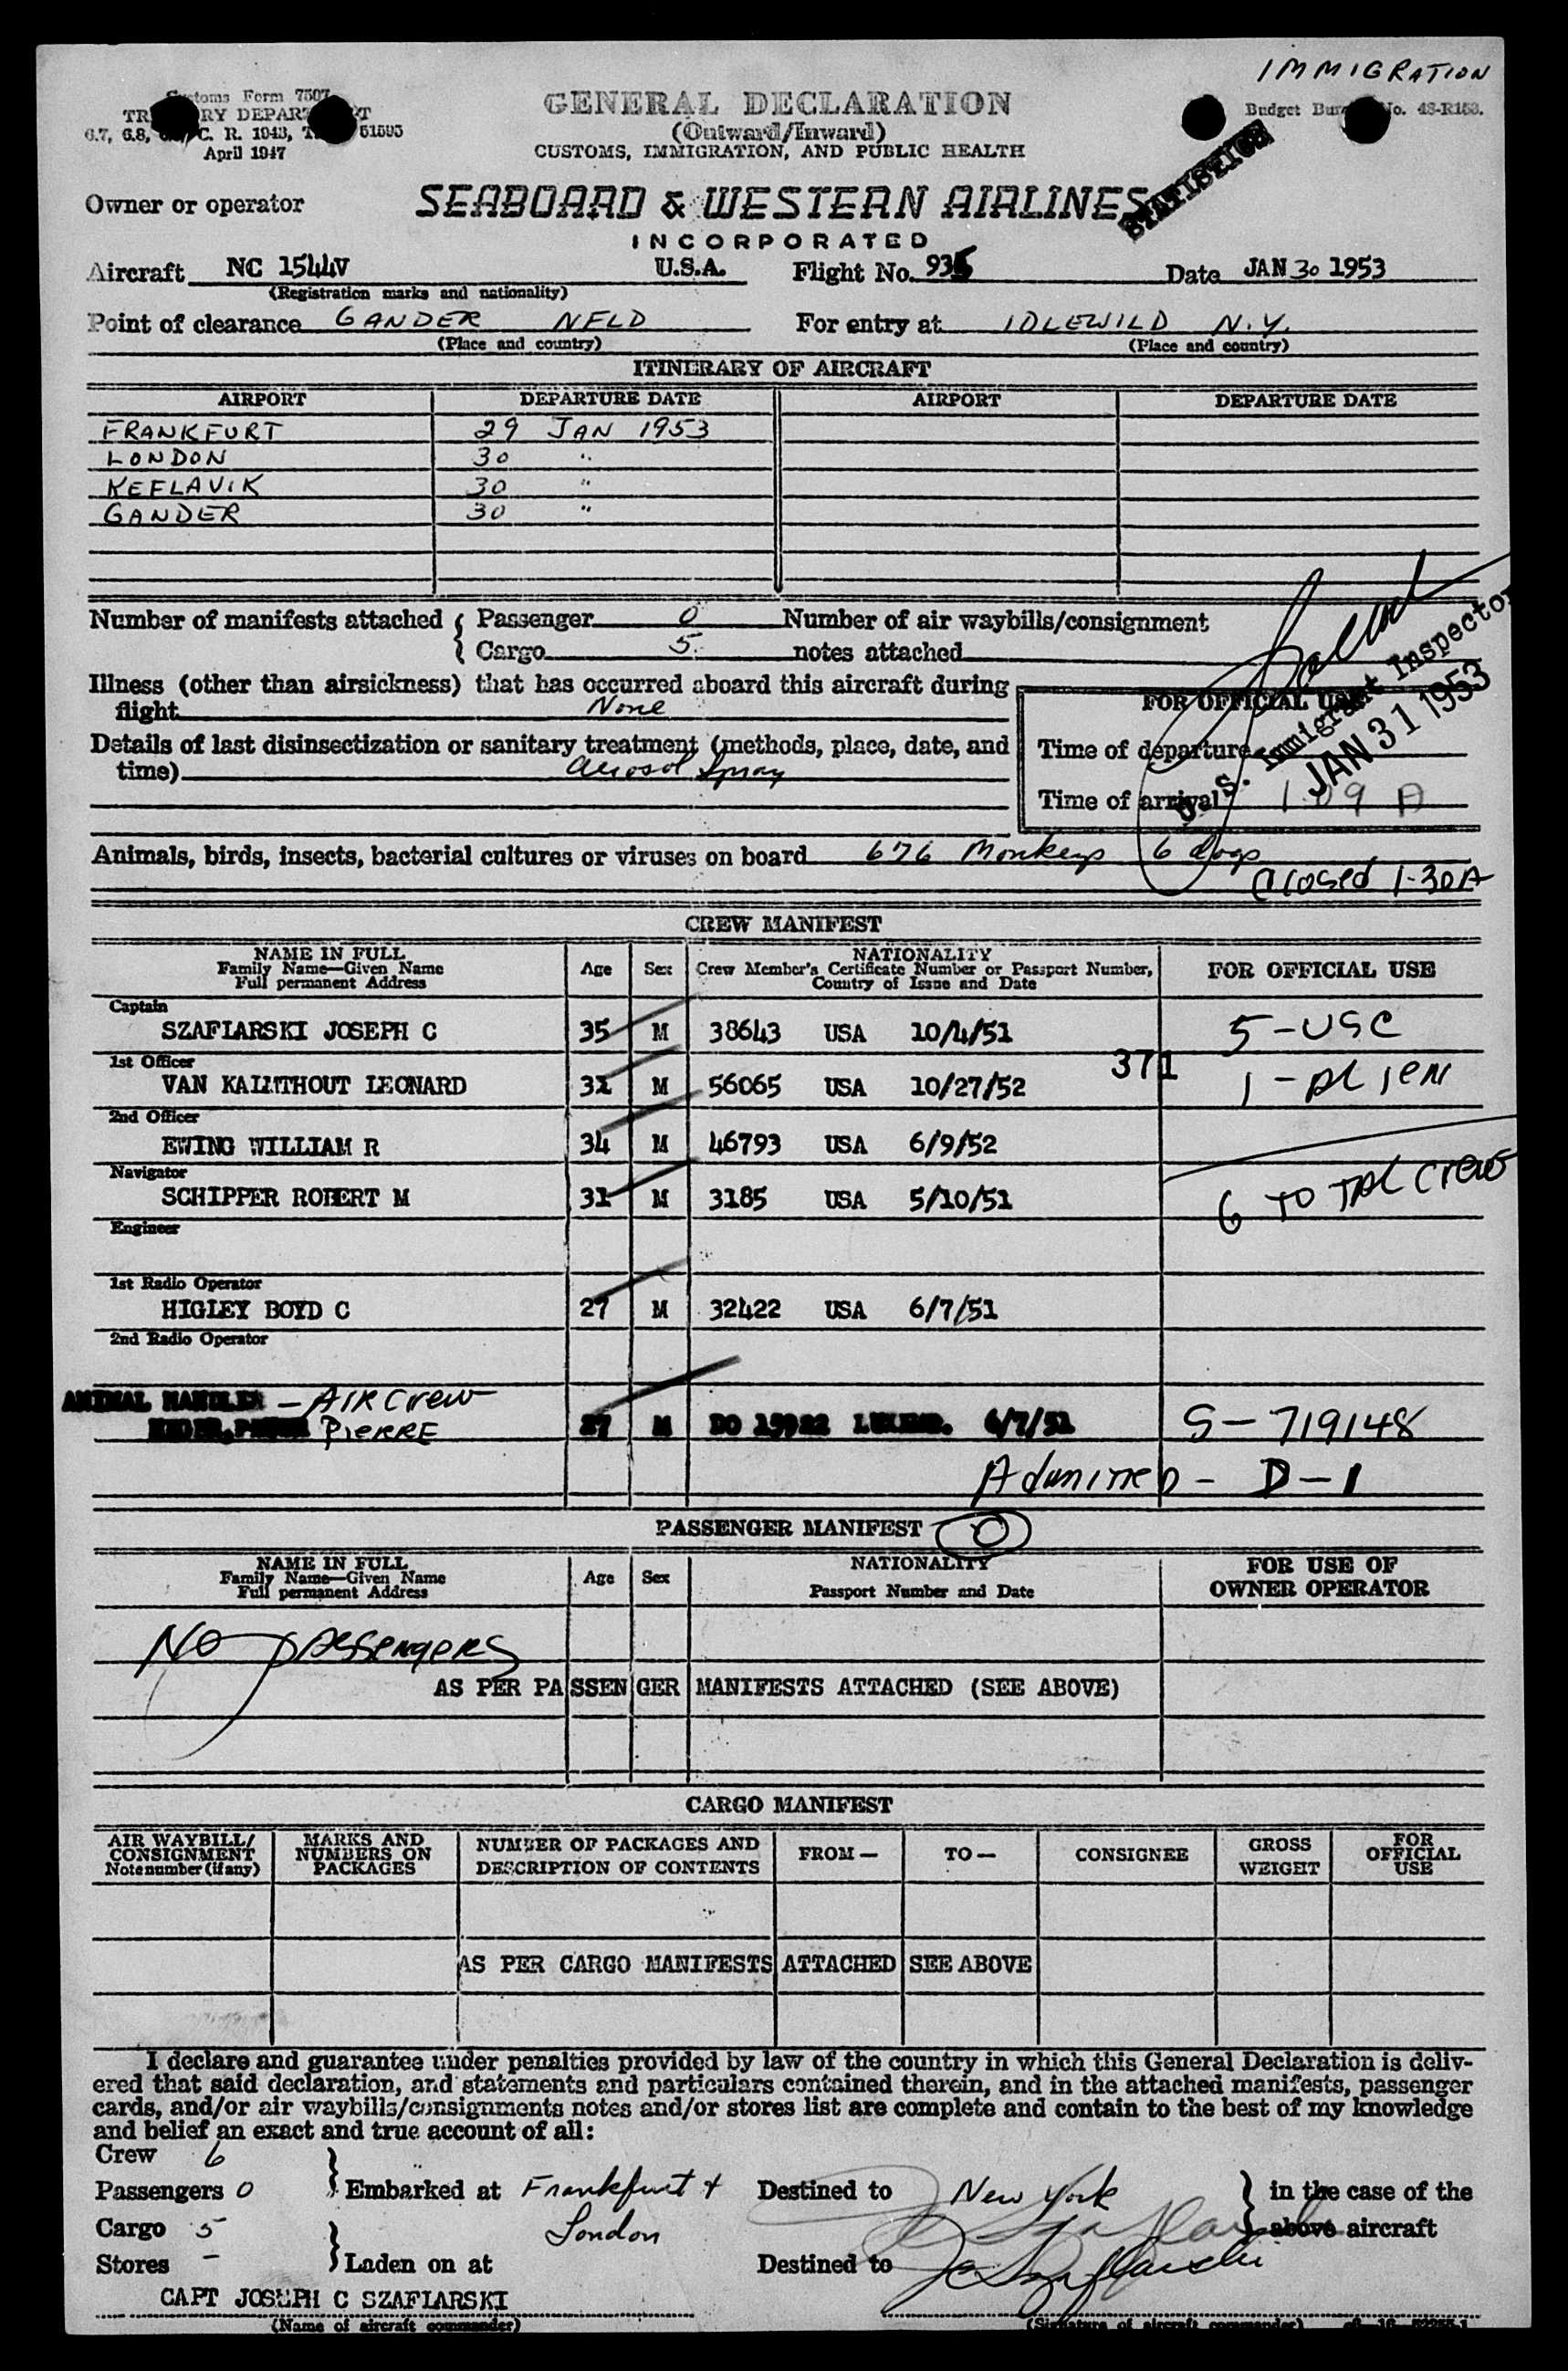 IMMIGRATION
Customs Form 7507
TREASURY DEPARTMENT
6.7, 6.8, C. R. 1943, T. 51595
April 1947
GENERAL DECLARATION
(Outward/Inward)
CUSTOMS, IMMIGRATION, AND PUBLIC HEALTH
Budget Bureau No. 48-R153.
STATISTICS
Owner or operator SEABOARD & WESTERN AIRLINES
INCORPORATED
Aircraft NC 1544V U.S.A. Flight No. 935 Date JAN 30 1953
(Registration marks and nationality)
Point of clearance GANDER NFLD For entry at IDLEWILD N.Y.
(Place and country) (Place and country)
ITINERARY OF AIRCRAFT
AIRPORT DEPARTURE DATE AIRPORT DEPARTURE DATE
FRANKFURT 29 JAN 1953
LONDON 30 "
KEFLAVIK 30 "
GANDER 30 "
Number of manifests attached { Passenger 0 Number of air waybills/consignment
Cargo 5 notes attached
Illness (other than airsickness) that has occurred aboard this aircraft during
flight None
Details of last disinsectization or sanitary treatment (methods, place, date, and
time) aerosol Spray
FOR OFFICIAL USE
Time of departure
Time of arrival 1 09 A
U. S. Immigrant Inspector
JAN 31 1953
Animals, birds, insects, bacterial cultures or viruses on board 676 Monkeys 6 dogs
Closed 1-30A
CREW MANIFEST
NAME IN FULL
Family Name—Given Name
Full permanent Address
Age Sex
NATIONALITY
Crew Member's Certificate Number or Passport Number,
Country of Issue and Date
FOR OFFICIAL USE
Captain
SZAFLARSKI JOSEPH C 35 M 38643 USA 10/4/51 5-USC
1st Officer
VAN KALMTHOUT LEONARD 31 M 56065 USA 10/27/52 371 1-Alien
2nd Officer
EWING WILLIAM R 34 M 46793 USA 6/9/52
Navigator
SCHIPPER ROBERT M 31 M 3185 USA 5/10/51 6 TOTAL Crew
Engineer
1st Radio Operator
HIGLEY BOYD C 27 M 32422 USA 6/7/51
2nd Radio Operator
ANIMAL HANDLER - AIR Crew
PIERRE 27 M 6/7/51 S-719148
Admitted - D-1
PASSENGER MANIFEST 0
NAME IN FULL
Family Name—Given Name
Full permanent Address
Age Sex
NATIONALITY
Passport Number and Date
FOR USE OF
OWNER OPERATOR
NO passengers
AS PER PASSENGER MANIFESTS ATTACHED (SEE ABOVE)
CARGO MANIFEST
AIR WAYBILL/
CONSIGNMENT
Note number (if any)
MARKS AND
NUMBERS ON
PACKAGES
NUMBER OF PACKAGES AND
DESCRIPTION OF CONTENTS
FROM—
TO—
CONSIGNEE
GROSS
WEIGHT
FOR
OFFICIAL
USE
AS PER CARGO MANIFESTS ATTACHED SEE ABOVE
I declare and guarantee under penalties provided by law of the country in which this General Declaration is deliv-
ered that said declaration, and statements and particulars contained therein, and in the attached manifests, passenger
cards, and/or air waybills/consignments notes and/or stores list are complete and contain to the best of my knowledge
and belief an exact and true account of all:
Crew 6
Passengers 0 } Embarked at Frankfurt + Destined to New York } in the case of the
Cargo 5 London above aircraft
Stores - } Laden on at Destined to JC Szaflarski
CAPT JOSEPH C SZAFLARSKI
(Name of aircraft commander) (Signature of aircraft commander)